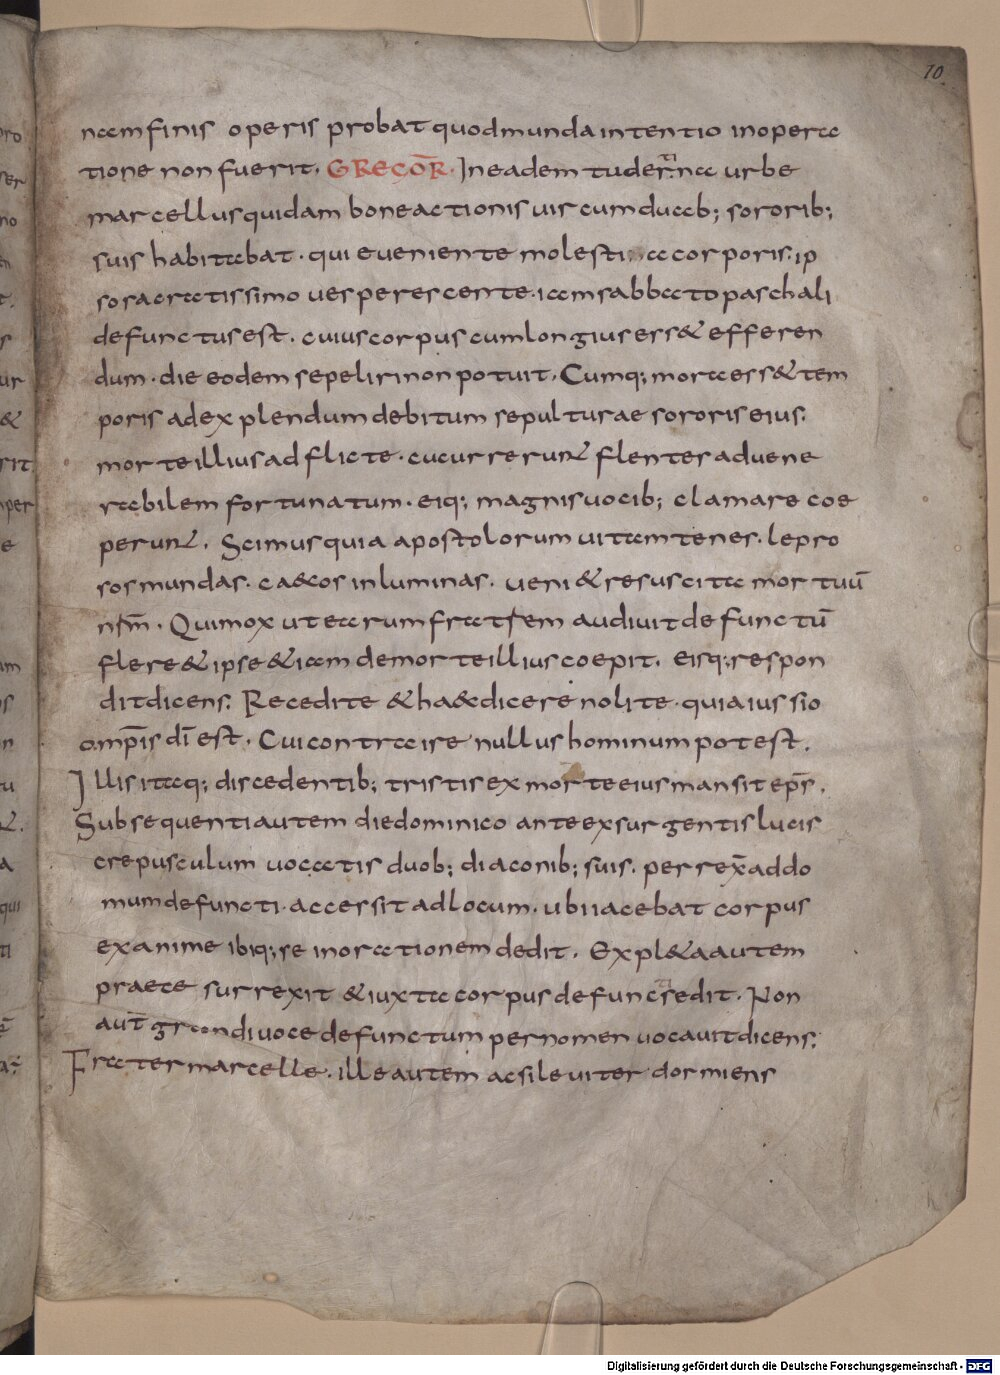 10
nam finis operis probat quod munda intentio in opera
tione non fuerit. GREGOR̄. In eadem tudertina urbe
marcellus quidam bone actionis uir cum duab; sororib;
suis habitabat. qui eueniente molestia corporis. ip
so sacratissimo uesperescente. iam sabbato paschali
defunctus est. cuius corpus cum longius ess& efferen
dum. die eodem sepeliri non potuit. Cumq; mora ess& tem
poris ad explendum debitum sepulturae sororis eius.
morte illius adflicte. cucurrerunt flentes ad uene
rabilem fortunatum. eiq; magnis uocib; clamare coe
perunt. Scimus quia apostolorum uitam tenes. lepro
sos mundas. ca&cos inluminas. ueni & resuscita mortuū
nr̄m. Qui mox ut earum fratrem audiuit defunctū
flere & ipse & iam de morte illius coepit. eisq; respon
dit dicens. Recedite & ha&c dicere nolite. quia iussio
omp̄is dī est. Cui contraire nullus hominum potest.
Illis itaq; discedentib; tristis ex morte eius mansit ep̄s.
Subsequenti autem die dominico ante exsurgentis lucis
crepusculum uocatis duob; diaconib; suis. perrex̄ ad do
mum defuncti. accersit ad locum. ubi iacebat corpus
exanime ibiq; se in orationem dedit. Expl&a autem
praece surrexit & iuxta corpus defuncti sedit. Non
aut̄ grandi uoce defunctum per nomen uocauit dicens.
Frater marcelle. ille autem ac si leuiter dormiens
Digitalisierung gefördert durch die Deutsche Forschungsgemeinschaft - DFG